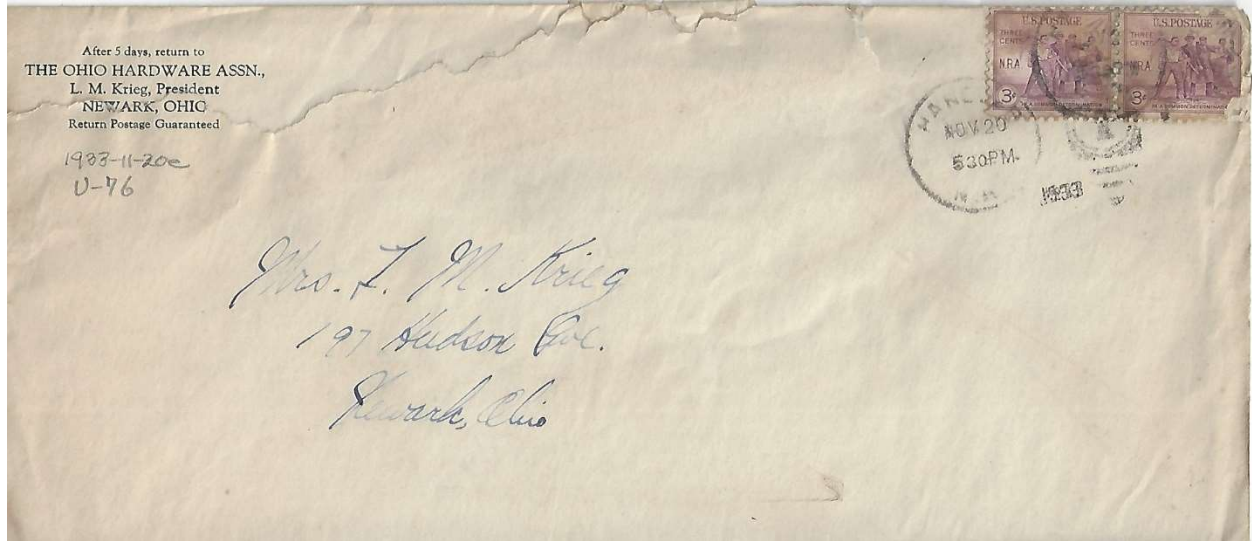 After 5 days, return to
THE OHIO HARDWARE ASSN.,
L. M. Krieg, President
NEWARK, OHIO
Return Postage Guaranteed
1933-11-20c
U-76
U.S. POSTAGE
THREE CENTS
N.R.A
3¢
U.S. POSTAGE
THREE CENTS
N.R.A
3¢
NOV 20
5 30 PM
1933
Mrs. L. M. Krieg
197 Hudson Ave.
Newark, Ohio